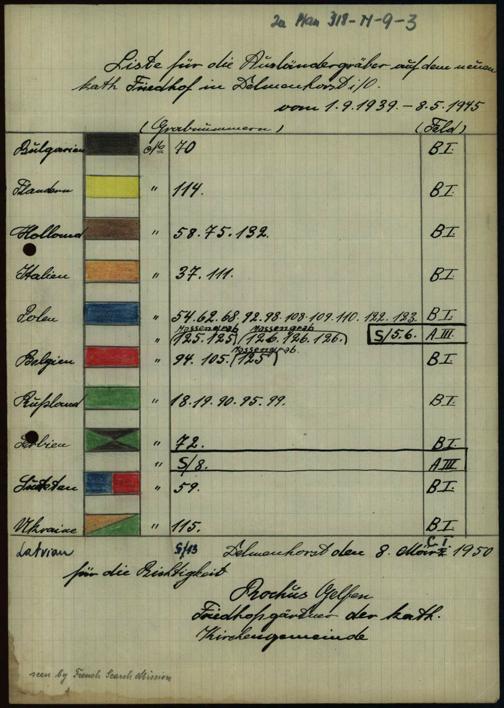 Za Plan 318-H-9-3
Liste für die Ausländergräber auf dem neuen
kath Friedhof in Delmenhorst i/O.
vom 1.9.1939. – 8.5.1945
(Grabnummern) (Feld)
Bulgarien 70 B I.
Flandern " 114. B I.
Holland " 58. 75. 132. B I.
Italien " 37. 111. B I.
Polen " 54. 62. 68. 92. 98. 108. 109. 110. 122. 123. B I.
Massengrab Massengrab
" (125. 125) (126. 126. 126.) S/5.6. A III.
Massengrab
Belgien " 94. 105. (125) B I.
Rußland " 18. 19. 90. 95. 99. B I.
Serbien " 72. B I
" S/8. A III
" 59. B I.
Ukraine " 115. B I.
Latvian S/13 C I
Delmenhorst den 8. März 1950
für die Richtigkeit
Rochus
Friedhofsgärtner der kath.
Kirchengemeinde
seen by French Search Mission